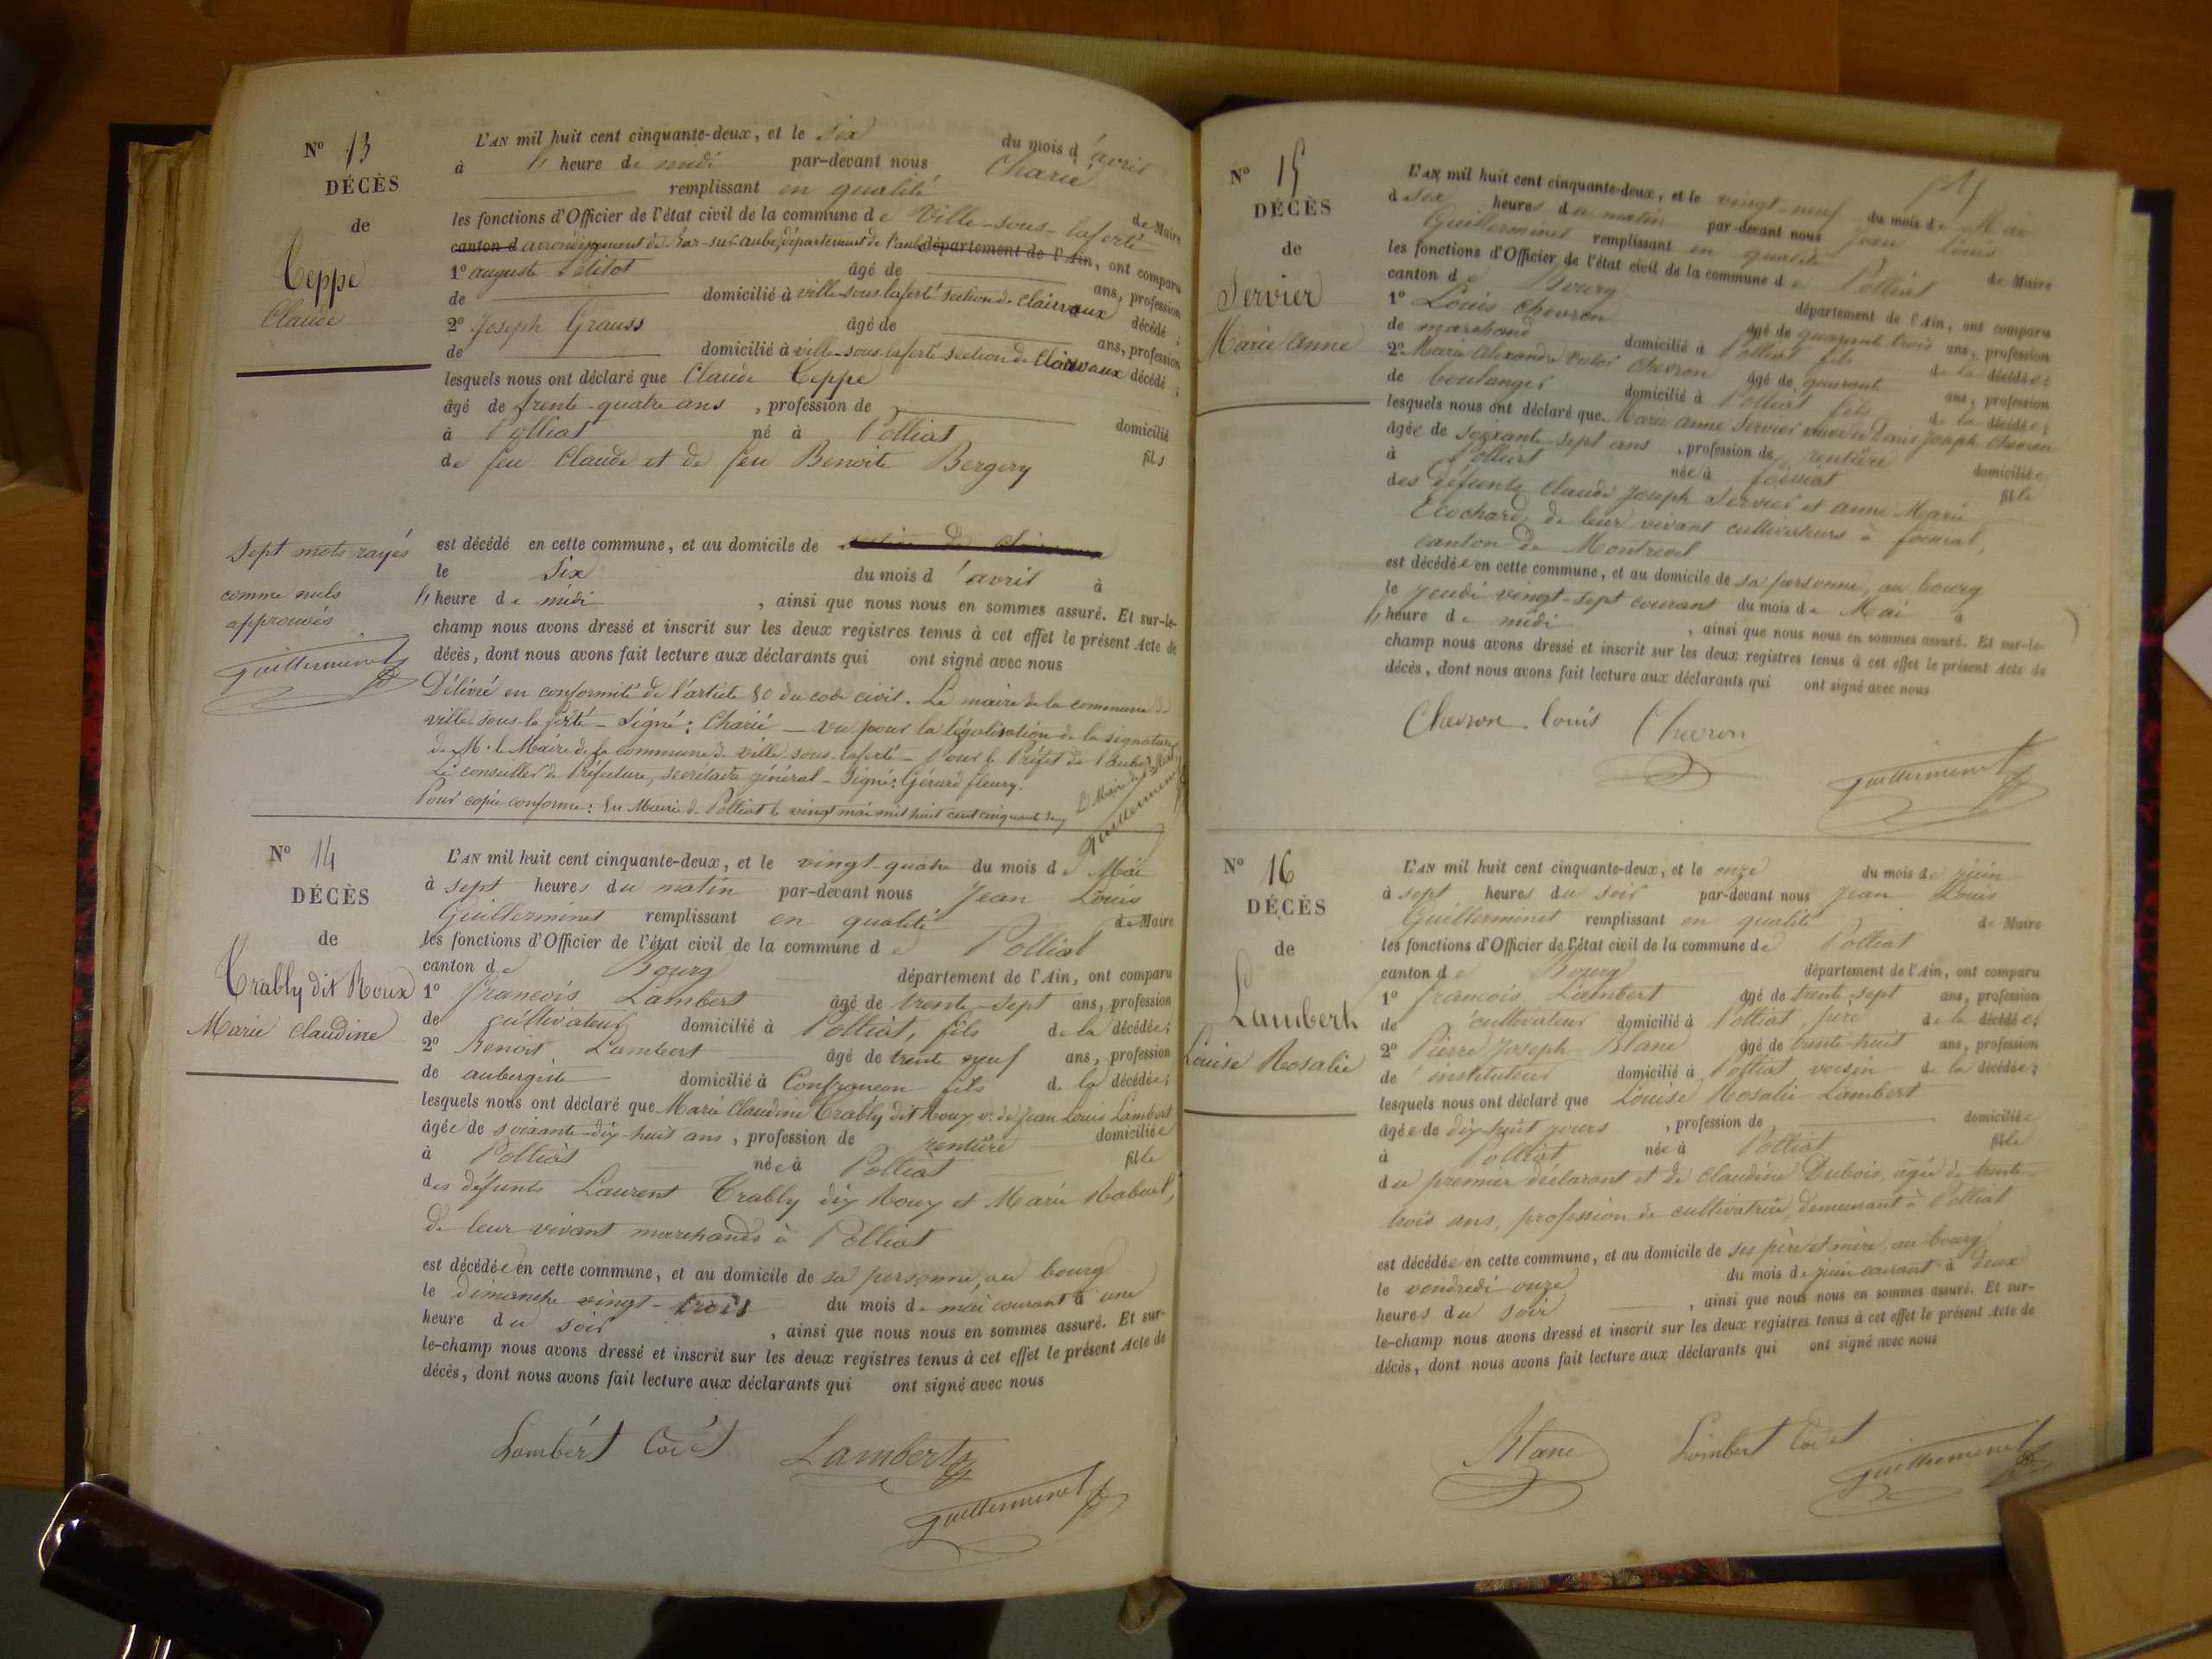 N° 13
DÉCÈS
de
Teppe
Claude
L'AN mil huit cent cinquante-deux, et le six du mois d'avril
à heure de midi par-devant nous Charié
remplissant en qualité de Maire
les fonctions d'Officier de l'état civil de la commune de Ville-sous-laferté
canton d arrondissement de Bar-sur-aube, département de l'aube département de l'Ain, ont comparu
1° auguste Petitot âgé de ans, profession
de domicilié à ville-sous-laferté section de clairvaux décédé ;
2° Joseph Grauss âgé de ans, profession
de domicilié à ville-sous-laferté section de Clairvaux décédé ;
lesquels nous ont déclaré que Claude Teppe
âgé de trente-quatre ans , profession de domicilié
à Polliat né à Polliat fils
de feu Claude et de feu Benoite Bergery
est décédé en cette commune, et au domicile de
le six du mois d'avril à
heure de midi , ainsi que nous nous en sommes assuré. Et sur-le-
champ nous avons dressé et inscrit sur les deux registres tenus à cet effet le présent Acte de
décès, dont nous avons fait lecture aux déclarants qui ont signé avec nous
Délivré en conformité de l'article 80 du code civil. Le maire de la commune de
ville-sous-la ferté - Signé: Charié - Vu pour la légalisation de la signature
de M. le Maire de la commune de ville-sous-laferté - Pour le Préfet de l'aube
Le conseiller de Préfecture, secrétaire général - Signé: Gérard fleury.
Pour copie conforme: En Mairie de Polliat le vingt mai mil huit cent cinquante deux
Le Maire de Polliat
Guillerminet
Sept mots rayés
comme nuls
approuvés
Guillerminet
N° 14
DÉCÈS
de
Trably dit Roux
Marie Claudine
L'AN mil huit cent cinquante-deux, et le vingt-quatre du mois de Mai
à sept heures du matin par-devant nous Jean Louis
Guillerminet remplissant en qualité de Maire
les fonctions d'Officier de l'état civil de la commune de Polliat
canton de Bourg département de l'Ain, ont comparu
1° francois Lambert âgé de trente-sept ans, profession
de cultivateur domicilié à Polliat, fils de la décédée;
2° Benoit Lambert âgé de trente neuf ans, profession
de aubergiste domicilié à Confrancon fils de la décédée;
lesquels nous ont déclaré que Marie Claudine Trably dit Roux v.e de Jean Louis Lambert
âgée de soixante-dix-huit ans , profession de rentière domiciliée
à Polliat née à Polliat fille
des défunts Laurent Trably dix Roux et Marie Rabuel,
de leur vivant marchands à Polliat
est décédée en cette commune, et au domicile de sa personne, au bourg
le dimanche vingt-trois du mois de mai courant à une
heure du soir , ainsi que nous nous en sommes assuré. Et sur-
le-champ nous avons dressé et inscrit sur les deux registres tenus à cet effet le présent Acte de
décès, dont nous avons fait lecture aux déclarants qui ont signé avec nous
Lambert Cadet Lambert
Guillerminet
N° 15
DÉCÈS
de
Servier
Marie Anne
L'AN mil huit cent cinquante-deux, et le vingt-neuf du mois de Mai
à six heures du matin par-devant nous Jean Louis
Guillerminet remplissant en qualité de Maire
les fonctions d'Officier de l'état civil de la commune de Polliat
canton de Bourg département de l'Ain, ont comparu
1° Louis Chevron âgé de quarante trois ans, profession
de marchand domicilié à Polliat fils de la décédée;
2° Marie Alexandre Victor Chevron âgé de quarante ans, profession
de boulanger domicilié à Polliat fils de la décédée;
lesquels nous ont déclaré que Marie Anne Servier veuve de Denis Joseph Chevron
âgée de soixante-sept ans , profession de rentière domiciliée
à Polliat née à foissiat fille
des défunts Claude Joseph Servier et anne Marie
Ecochard, de leur vivant cultivateurs à foissiat,
canton de Montrevel
est décédée en cette commune, et au domicile de sa personne, au bourg
le jeudi vingt-sept courant du mois de Mai à
heure de midi , ainsi que nous nous en sommes assuré. Et sur-le-
champ nous avons dressé et inscrit sur les deux registres tenus à cet effet le présent Acte de
décès, dont nous avons fait lecture aux déclarants qui ont signé avec nous
Chevron Louis Chevron
Guillerminet
N° 16
DÉCÈS
de
Lambert
Louise Rosalie
L'AN mil huit cent cinquante-deux, et le onze du mois de juin
à sept heures du soir par-devant nous Jean Louis
Guillerminet remplissant en qualité de Maire
les fonctions d'Officier de l'état civil de la commune de Polliat
canton de Bourg département de l'Ain, ont comparu
1° francois Lambert âgé de trente sept ans, profession
de cultivateur domicilié à Polliat, père de la décédée;
2° Pierre Joseph Blanc âgé de trente-huit ans, profession
de instituteur domicilié à Polliat voisin de la décédée;
lesquels nous ont déclaré que Louise Rosalie Lambert
âgée de dix-huit jours , profession de domiciliée
à Polliat née à Polliat fille
du premier déclarant et de Claudine Dubois, âgée de trente-
trois ans, profession de cultivatrice, demeurant à Polliat
est décédée en cette commune, et au domicile de ses père et mère, au bourg
le vendredi onze du mois de juin courant à deux
heures du soir , ainsi que nous nous en sommes assuré. Et sur-
le-champ nous avons dressé et inscrit sur les deux registres tenus à cet effet le présent Acte de
décès, dont nous avons fait lecture aux déclarants qui ont signé avec nous
Blanc Lambert Cadet
Guillerminet